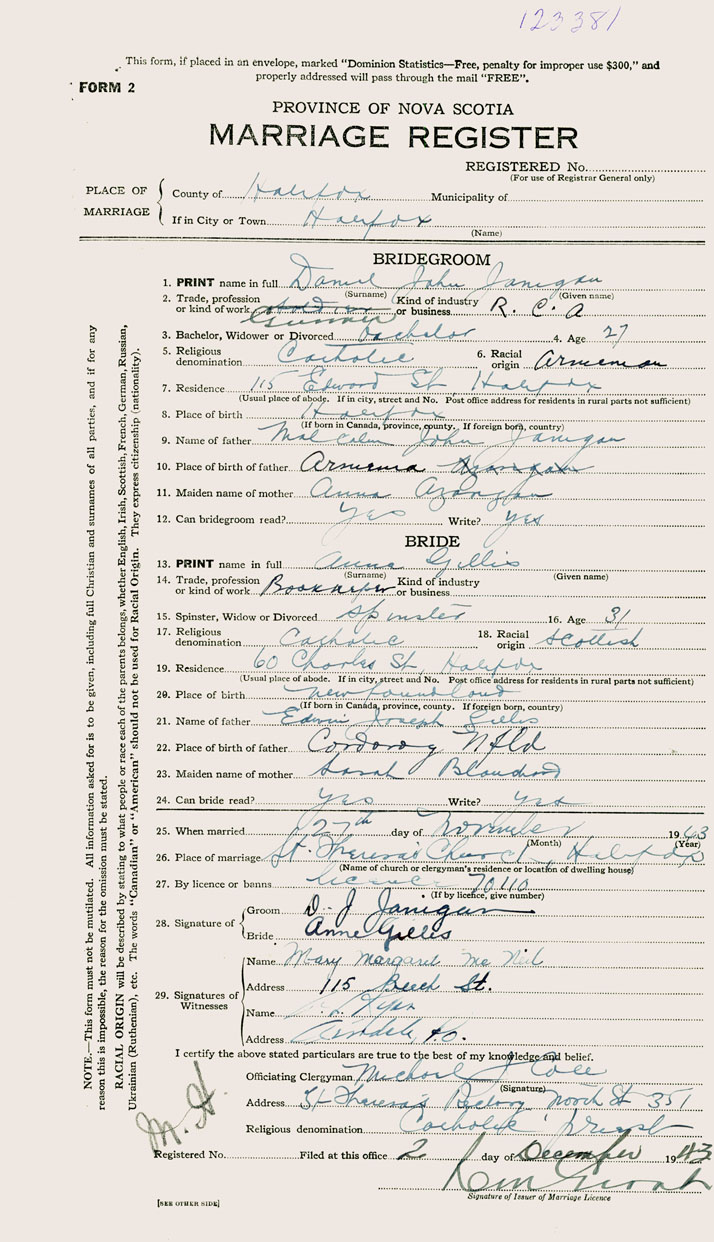 123381
This form, if placed in an envelope, marked "Dominion Statistics—Free, penalty for improper use $300," and
properly addressed will pass through the mail "FREE".
FORM 2
PROVINCE OF NOVA SCOTIA
MARRIAGE REGISTER
REGISTERED No.
(For use of Registrar General only)
PLACE OF MARRIAGE
County of Halifax Municipality of
If in City or Town Halifax
(Name)
BRIDEGROOM
1. PRINT name in full Daniel John Janigan
(Surname) (Given name)
2. Trade, profession or kind of work Gunner Kind of industry or business R. C. A
3. Bachelor, Widower or Divorced Bachelor 4. Age 27
5. Religious denomination Catholic 6. Racial origin Armenian
7. Residence 115 Edward St Halifax
(Usual place of abode. If in city, street and No. Post office address for residents in rural parts not sufficient)
8. Place of birth Halifax
(If born in Canada, province, county. If foreign born, country)
9. Name of father Malcolm John Janigan
10. Place of birth of father Armenia
11. Maiden name of mother Anna
12. Can bridegroom read? Yes Write? Yes
BRIDE
13. PRINT name in full Anna Gillis
(Surname) (Given name)
14. Trade, profession or kind of work Bookkeeper Kind of industry or business
15. Spinster, Widow or Divorced Spinster 16. Age 31
17. Religious denomination Catholic 18. Racial origin Scottish
19. Residence 60 Charles St, Halifax
(Usual place of abode. If in city, street and No. Post office address for residents in rural parts not sufficient)
20. Place of birth Newfoundland
(If born in Canada, province, county. If foreign born, country)
21. Name of father Edwin Joseph Gillis
22. Place of birth of father Cordoroy Nfld
23. Maiden name of mother Sarah Blanchard
24. Can bride read? Yes Write? Yes
25. When married 27th day of November 1943
(Month) (Year)
26. Place of marriage St. Theresa's Church, Halifax
(Name of church or clergyman's residence or location of dwelling house)
27. By licence or banns licence 70110
(If by licence, give number)
28. Signature of
Groom D. J Janigan
Bride Anne Gillis
29. Signatures of Witnesses
Name Mary Margaret Mc Neil
Address 115 Beech St.
Name Ryan
Address
I certify the above stated particulars are true to the best of my knowledge and belief.
Officiating Clergyman Michael J Cole
(Signature)
Address St Theresa's Rectory North St 351
Religious denomination Catholic priest
Registered No. Filed at this office 2 day of December 1943
Signature of Issuer of Marriage Licence
[SEE OTHER SIDE]
NOTE.—This form must not be mutilated. All information asked for is to be given, including full Christian and surnames of all parties, and if for any
reason this is impossible, the reason for the omission must be stated.
RACIAL ORIGIN will be described by stating to what people or race each of the parents belongs, whether English, Irish, Scottish, French, German, Russian,
Ukrainian (Ruthenian), etc. The words "Canadian" or "American" should not be used for Racial Origin. They express citizenship (nationality).